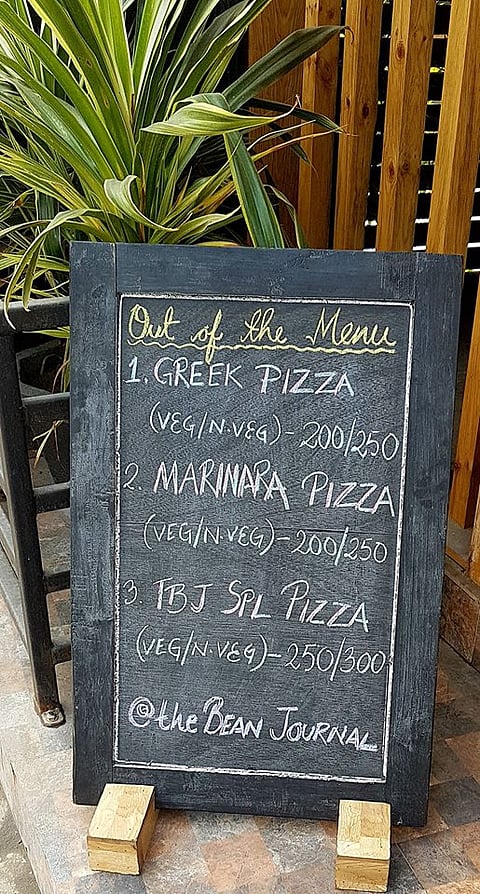 Out of the Menu
1. GREEK PIZZA
(VEG/N.VEG) - 200/250
2. MARINARA PIZZA
(VEG/N.VEG) - 200/250
3. TBJ SPL PIZZA
(VEG/N.VEG) - 250/300
@ the BEAN JOURNAL